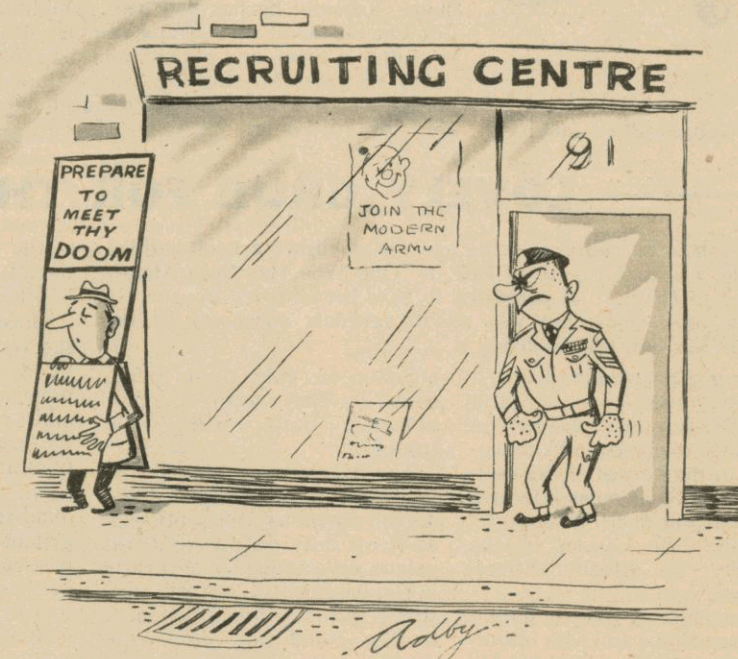 RECRUITING CENTRE
91
PREPARE
TO
MEET
THY
DOOM
JOIN THE
MODERN
ARMY
Adby